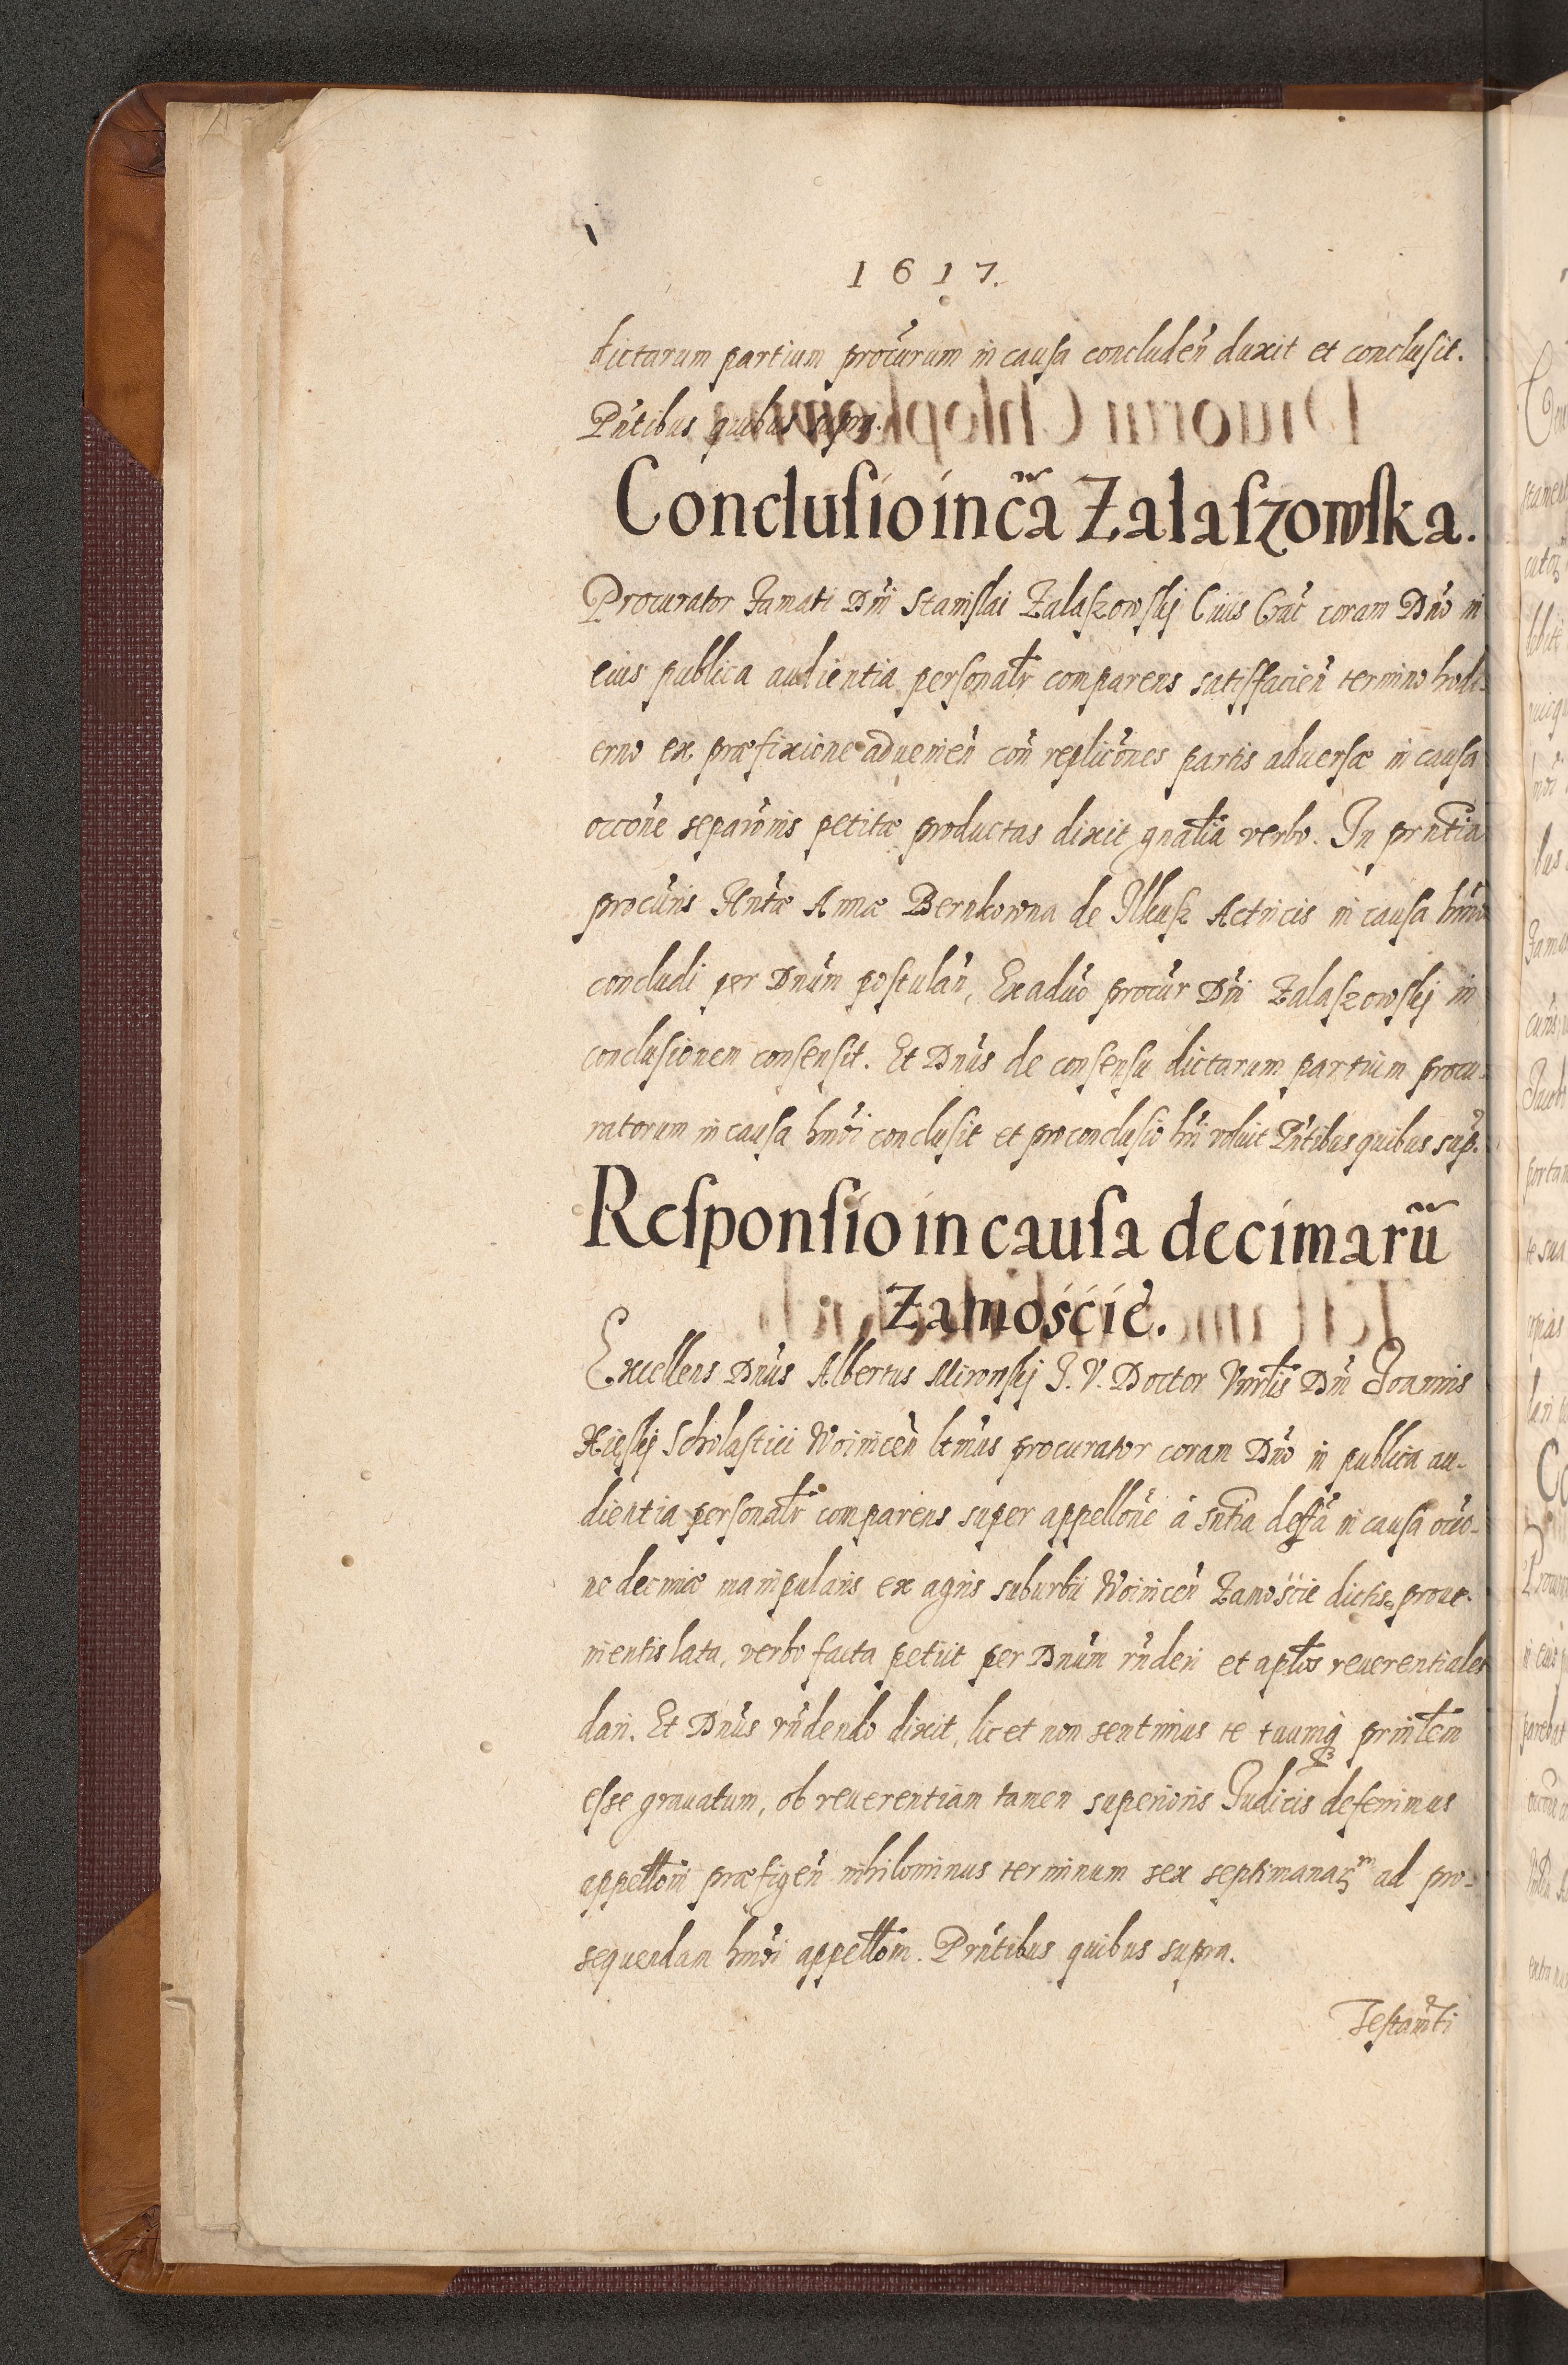 1617.
dictarum partium procurum in causa concluden duxit et conclusit.
Pntibus quibus supra.
Conclusio in ca Zalaszowska.
Procurator Famati Dni Stanislai Zalaszowskij Ciuis Crac coram Dno in
eius publica audientia personalr comparens satisfacien termino hodi-
erno ex præfixione aduenien con replicones partis aduersæ in causa
occone separonis petitæ productas dixit gnalia verbo. In prntia
procuris Hntæ Annæ Bernkowna de Ilkusz Actricis in causa hmoi
concludi per Dnum postulan, Ex aduo procur Dni Zalaszowskij in
conclusionem consensit. Et Dnus de consensu dictarum partium procu-
ratorum in causa hmoi conclusit et pro concluso hri voluit Pntibus quibus sup.
Responsio in causa decimarū
Zamoście.
Excellens Dnus Albertus Mirowskij J. V. Doctor Vnrlis Dni Joannis
Scholastici Woinicen ltmus procurator coram Dno in publica au-
dientia personalr comparens super appellone á sntia deffa in causa occo-
ne decimæ manipularis ex agris suburbii Woinicen Zamoście dictis proue-
nientis lata, verbo facta petiit per Dnum rnderi et aplos reuerentiales
dari. Et Dnus rndendo dixit, licet non sentimus te tuumq prinlem
esse grauatum, ob reuerentiam tamen superioris Judicis deferimus
appelloni præfigen nihilominus terminum sex septimanarm ad pro-
sequendam hmoi appellom. Prntibus quibus supra.
Testamti